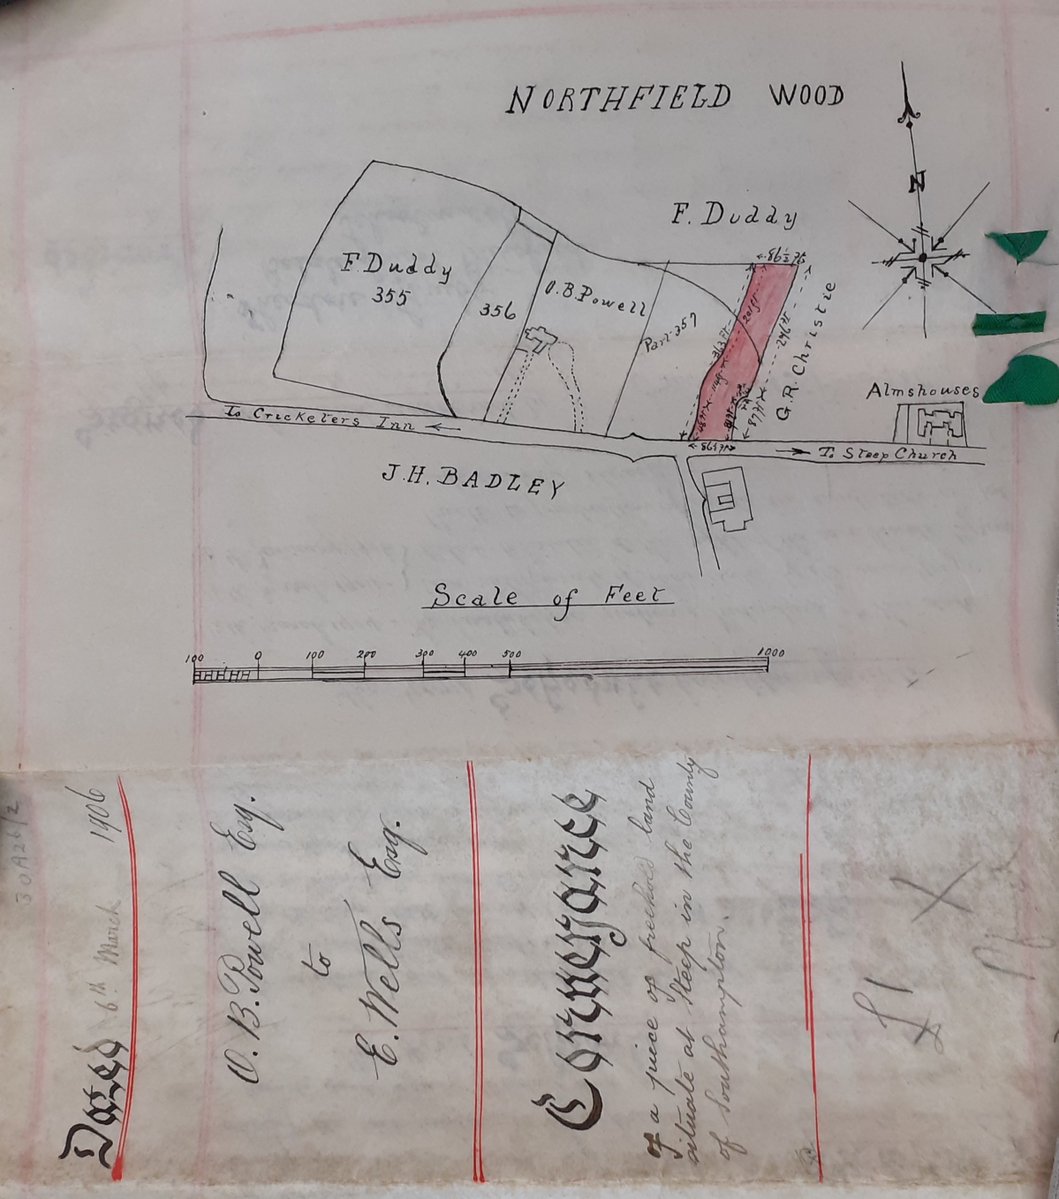 NORTHFIELD WOOD
N
F. Duddy
F. Duddy
355
356
O.B. Powell
Part 357
G.R. Christie
Almshouses
To Cricketers Inn
To Steep Church
J.H. BADLEY
Scale of Feet
100 0 100 200 300 400 500 1000
Dated 6th March 1906
O. B. Powell Esq.
to
E. Wells Esq.
Conveyance
of a piece of freehold land
situate at Steep in the County
of Southampton.